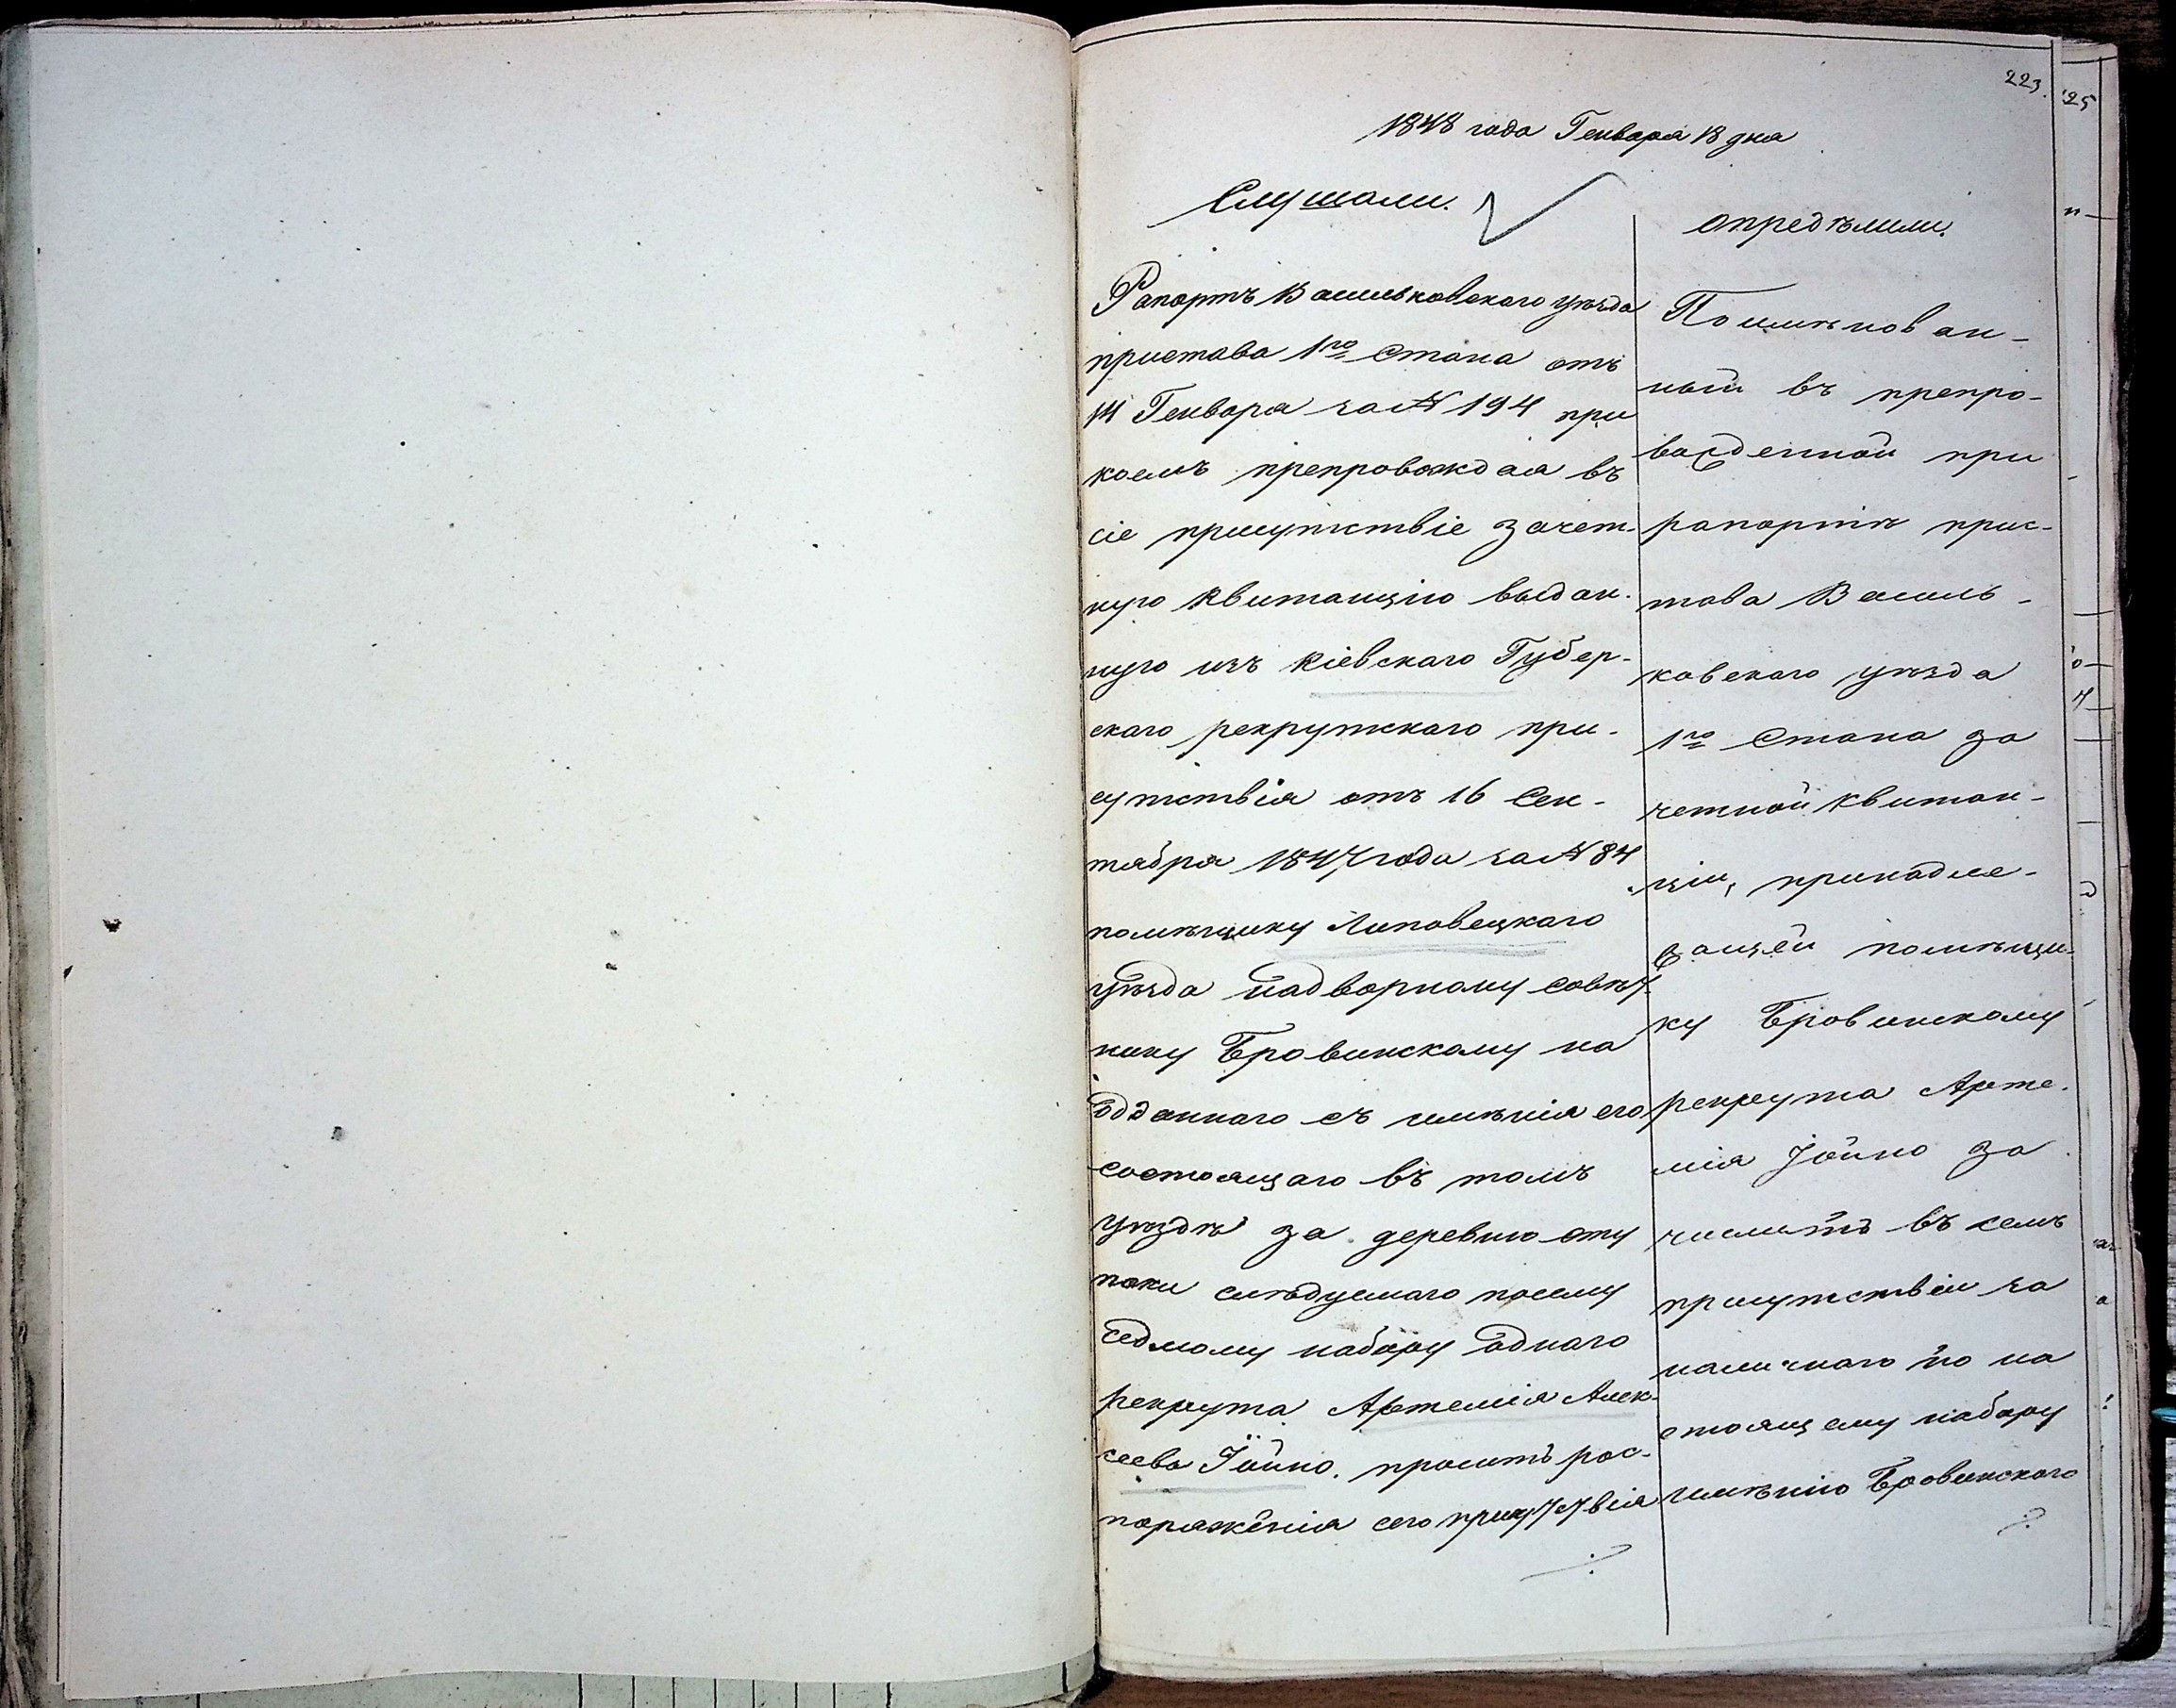 223.
1848 года Генваря 18 дня
Слушали.
Рапортъ Васильковскаго уѣзда
пристава 1го Стана отъ
14 Генваря за № 194 при
коемъ препровождая въ
сіе присутствіе зачет-
ную квитанцію выдан-
ную изъ Кіевскаго Губер-
скаго рекрутскаго при-
сутствія отъ 16 Сен-
тября 1847 года за № 84
помѣщику Липовецкаго
уѣзда надворному совѣт-
нику Бровинскому на
отданнаго съ имѣнія его
состоящаго въ томъ
уѣздѣ за деревню
слѣдуемаго по сему
седмому набору однаго
рекрута Артемія Алек-
сеева Іойно. проситъ рас-
поряженія сего присутствія
опредѣлили.
Поимѣнован-
ный въ препро-
вожденной при
рапортѣ прис-
тава Василь-
ковскаго уѣзда
1го Стана за
четной квитан-
ціи, принадле-
жащей помѣщи-
ку Бровинскому
рекрута Арте-
мія Іойно за
числить въ семъ
присутствіи за
наличнаго по на
стоящему набору
имѣнію Бровинского
25